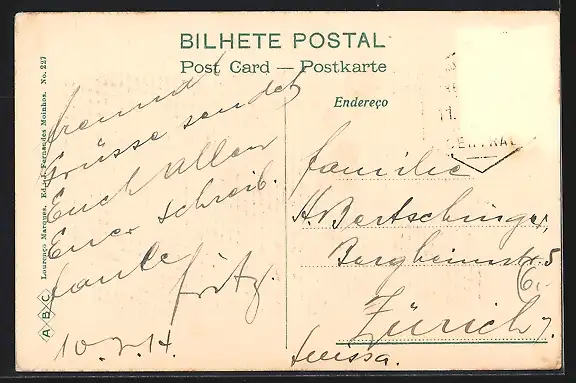 BILHETE POSTAL
Post Card — Postkarte
Endereço
Lourenço Marques. Ed. J. Fernandes Moinhos. No. 227
A B C
Grüsse sendet
Euch allen
Euer schreib.
faule Fritz.
10. 2. 14.
CENTRAL
familie
H. Bertschinger,
Bergheimstr. 5
Zürich 7.
Suissa.